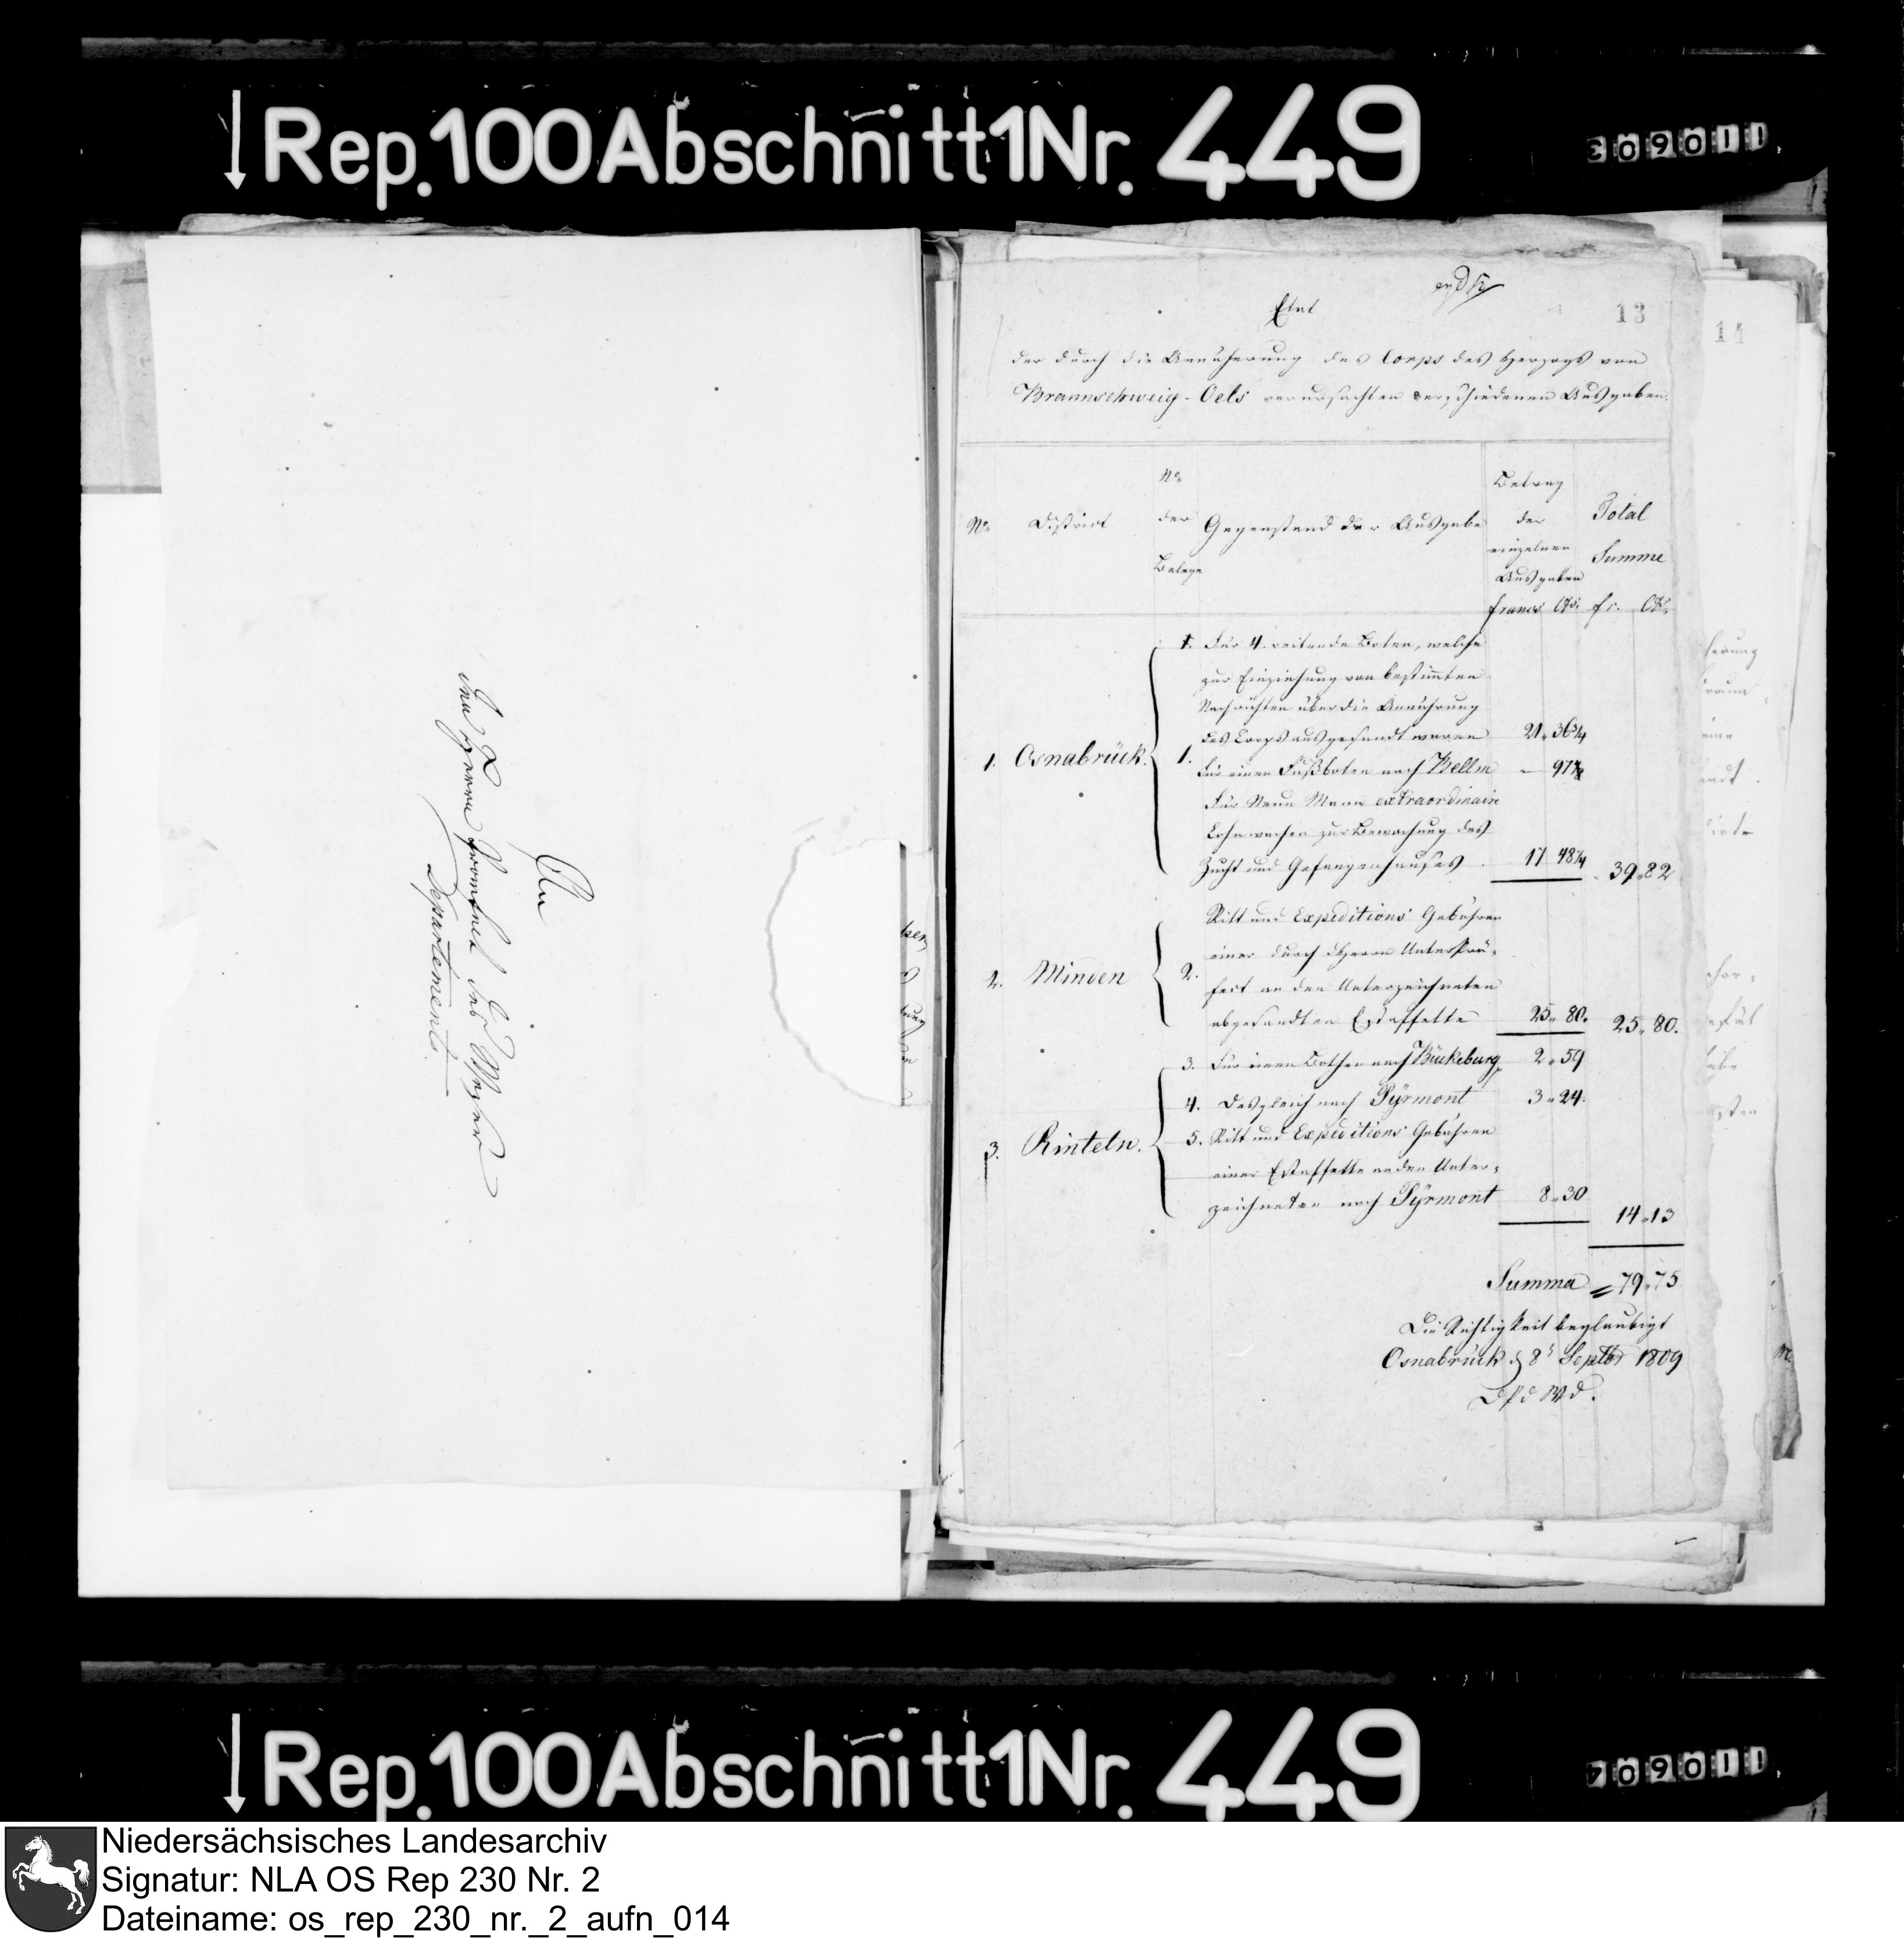 Rep.100Abschnitt1Nr. 449
An
den Herrn Praefect des Weser
Departements
13
14
Etat
der durch die Annäherung des Corps des Herzogs von
Braunschweig-Oels verursachten verschiedenen Ausgaben.
No District No der Belege Gegenstand der Ausgabe Betrag der einzelnen Ausgaben Total Summe
francs Cts. fr. Cts.
1. Osnabrück. 1. Für 4. reitende Boten, welche
zur Einziehung von bestimten
Nachrichten über die Annährung
des Corps ausgesandt waren 21. 36¾
1. Für einen Fußboten nach Bellm – 97⅞
Für Neun Mann extraordinaire
Lohnwachen zur Bewachung des
Zucht und Gefangenhauses 17 48¼ 39.82
2. Minden 2. Ritt und Expeditions Gebühren
einer durch Herrn Unterprä-
fect an den Unterzeichneten
abgesandten Estaffette 25. 80. 25. 80.
3. Rinteln. 3. Für einen Bothen nach Bückeburg 2. 59
4. Desgleich nach Pÿrmont 3. 24.
5. Ritt und Expeditions Gebühren
einer Estaffette an den Unter-
zeichneten nach Pÿrmont 8. 30
14.13
Summa = 79.75
Die Richtigkeit beglaubigt
Osnabrück d 8t Septbr 1809
D P d W d.
Rep.100Abschnitt1Nr. 449
Niedersächsisches Landesarchiv
Signatur: NLA OS Rep 230 Nr. 2
Dateiname: os_rep_230_nr._2_aufn_014